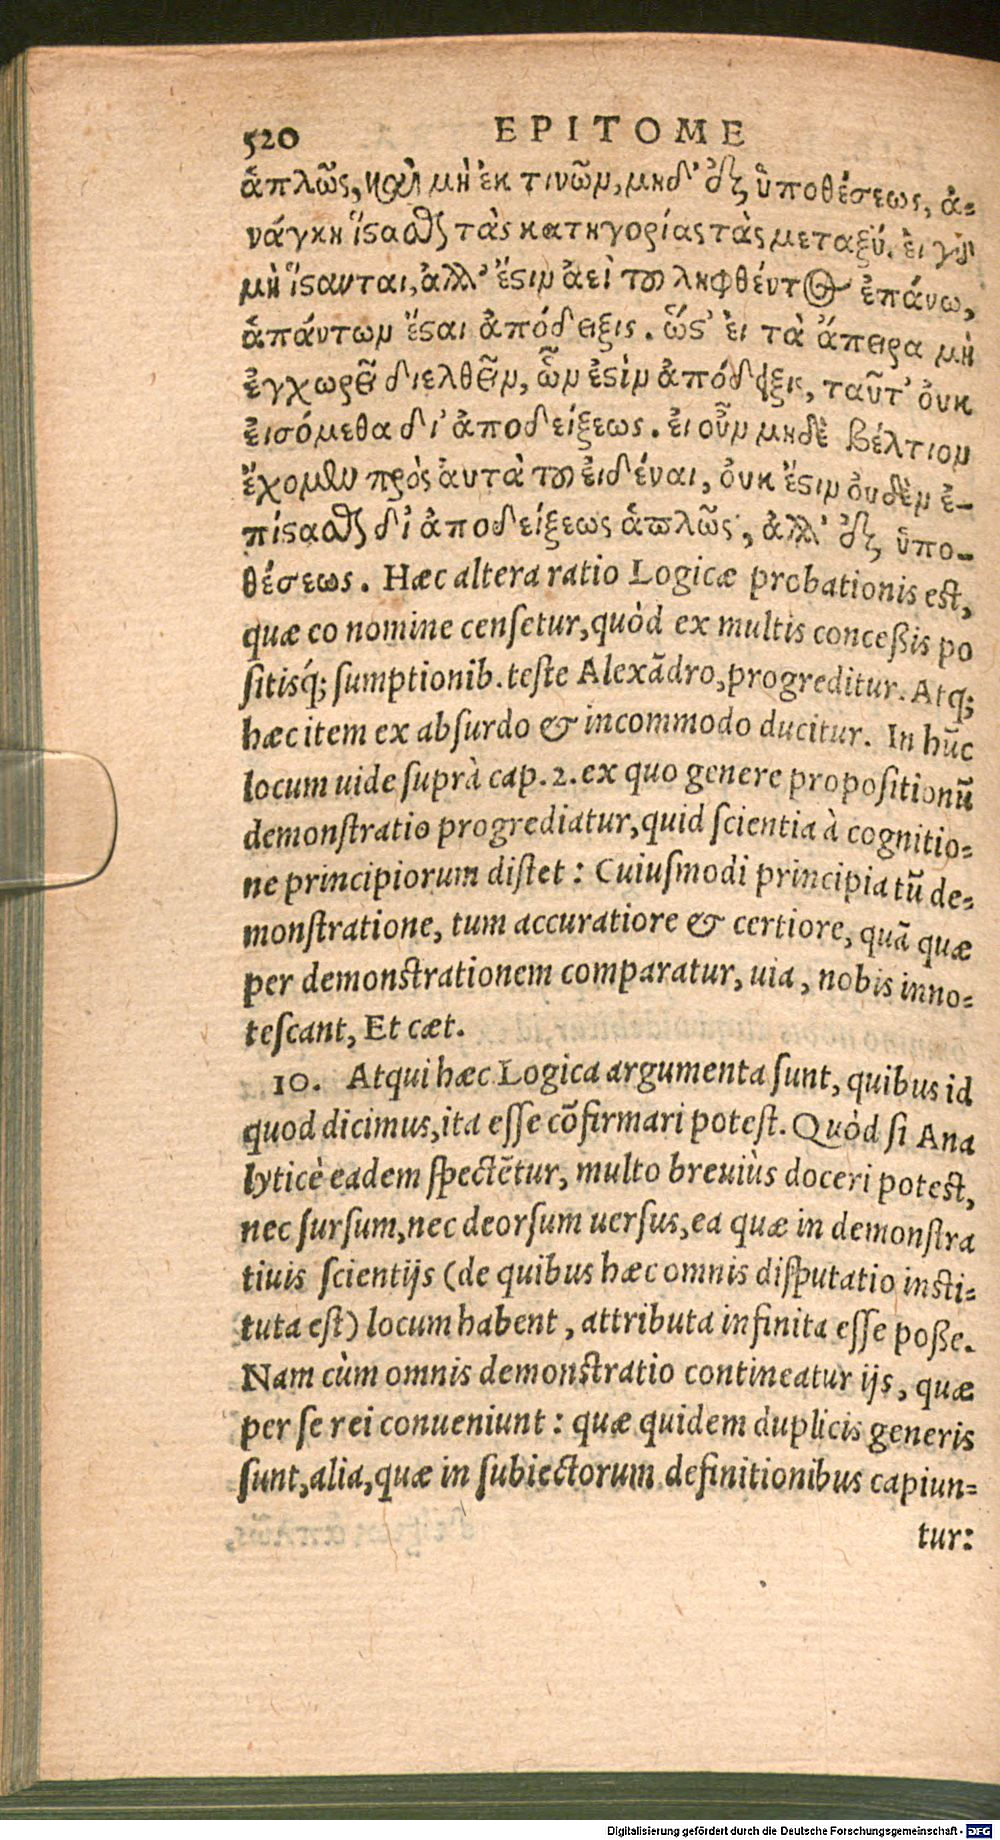 520 EPITOME
ἁπλῶς, καὶ μὴ ἐκ τινῶν, μηδ' ἐξ ὑποθέσεως, ἀ-
νάγκη ἵστασθαι τὰς κατηγορίας τὰς μεταξύ. εἰ γὰρ
μὴ ἵστανται, ἀλλ' ἔστιν ἀεὶ τοῦ ληφθέντος ἐπάνω,
ἁπάντων ἔσται ἀπόδειξις. ὥστ' εἰ τὰ ἄπειρα μὴ
ἐγχωρεῖ διελθεῖν, ὧν ἐστὶν ἀπόδειξις, ταῦτ' οὐκ
εἰσόμεθα δι' ἀποδείξεως. εἰ οὖν μηδὲ βέλτιον
ἔχομεν πρὸς αὐτὰ τοῦ εἰδέναι, οὐκ ἔστιν οὐδὲν ἐ-
πίστασθαι δι' ἀποδείξεως ἁπλῶς, ἀλλ' ἐξ ὑπο-
θέσεως. Hæc altera ratio Logicæ probationis est,
quæ eo nomine censetur, quòd ex multis conceßis po
sitisq́; sumptionib. teste Alexãdro, progreditur. Atq;
hæc item ex absurdo & incommodo ducitur. In hũc
locum uide suprà cap. 2. ex quo genere propositionũ
demonstratio progrediatur, quid scientia à cognitio-
ne principiorum distet: Cuiusmodi principia tũ de-
monstratione, tum accuratiore & certiore, quã quæ
per demonstrationem comparatur, uia, nobis inno-
tescant, Et cæt.
10. Atqui hæc Logica argumenta sunt, quibus id
quod dicimus, ita esse cõfirmari potest. Quòd si Ana
lyticè eadem spectẽtur, multo breuiùs doceri potest,
nec sursum, nec deorsum uersus, ea quæ in demonstra
tiuis scientijs (de quibus hæc omnis disputatio insti-
tuta est) locum habent, attributa infinita esse poße.
Nam cùm omnis demonstratio contineatur ijs, quæ
per se rei conueniunt: quæ quidem duplicis generis
sunt, alia, quæ in subiectorum definitionibus capiun-
tur:
Digitalisierung gefördert durch die Deutsche Forschungsgemeinschaft - DFG